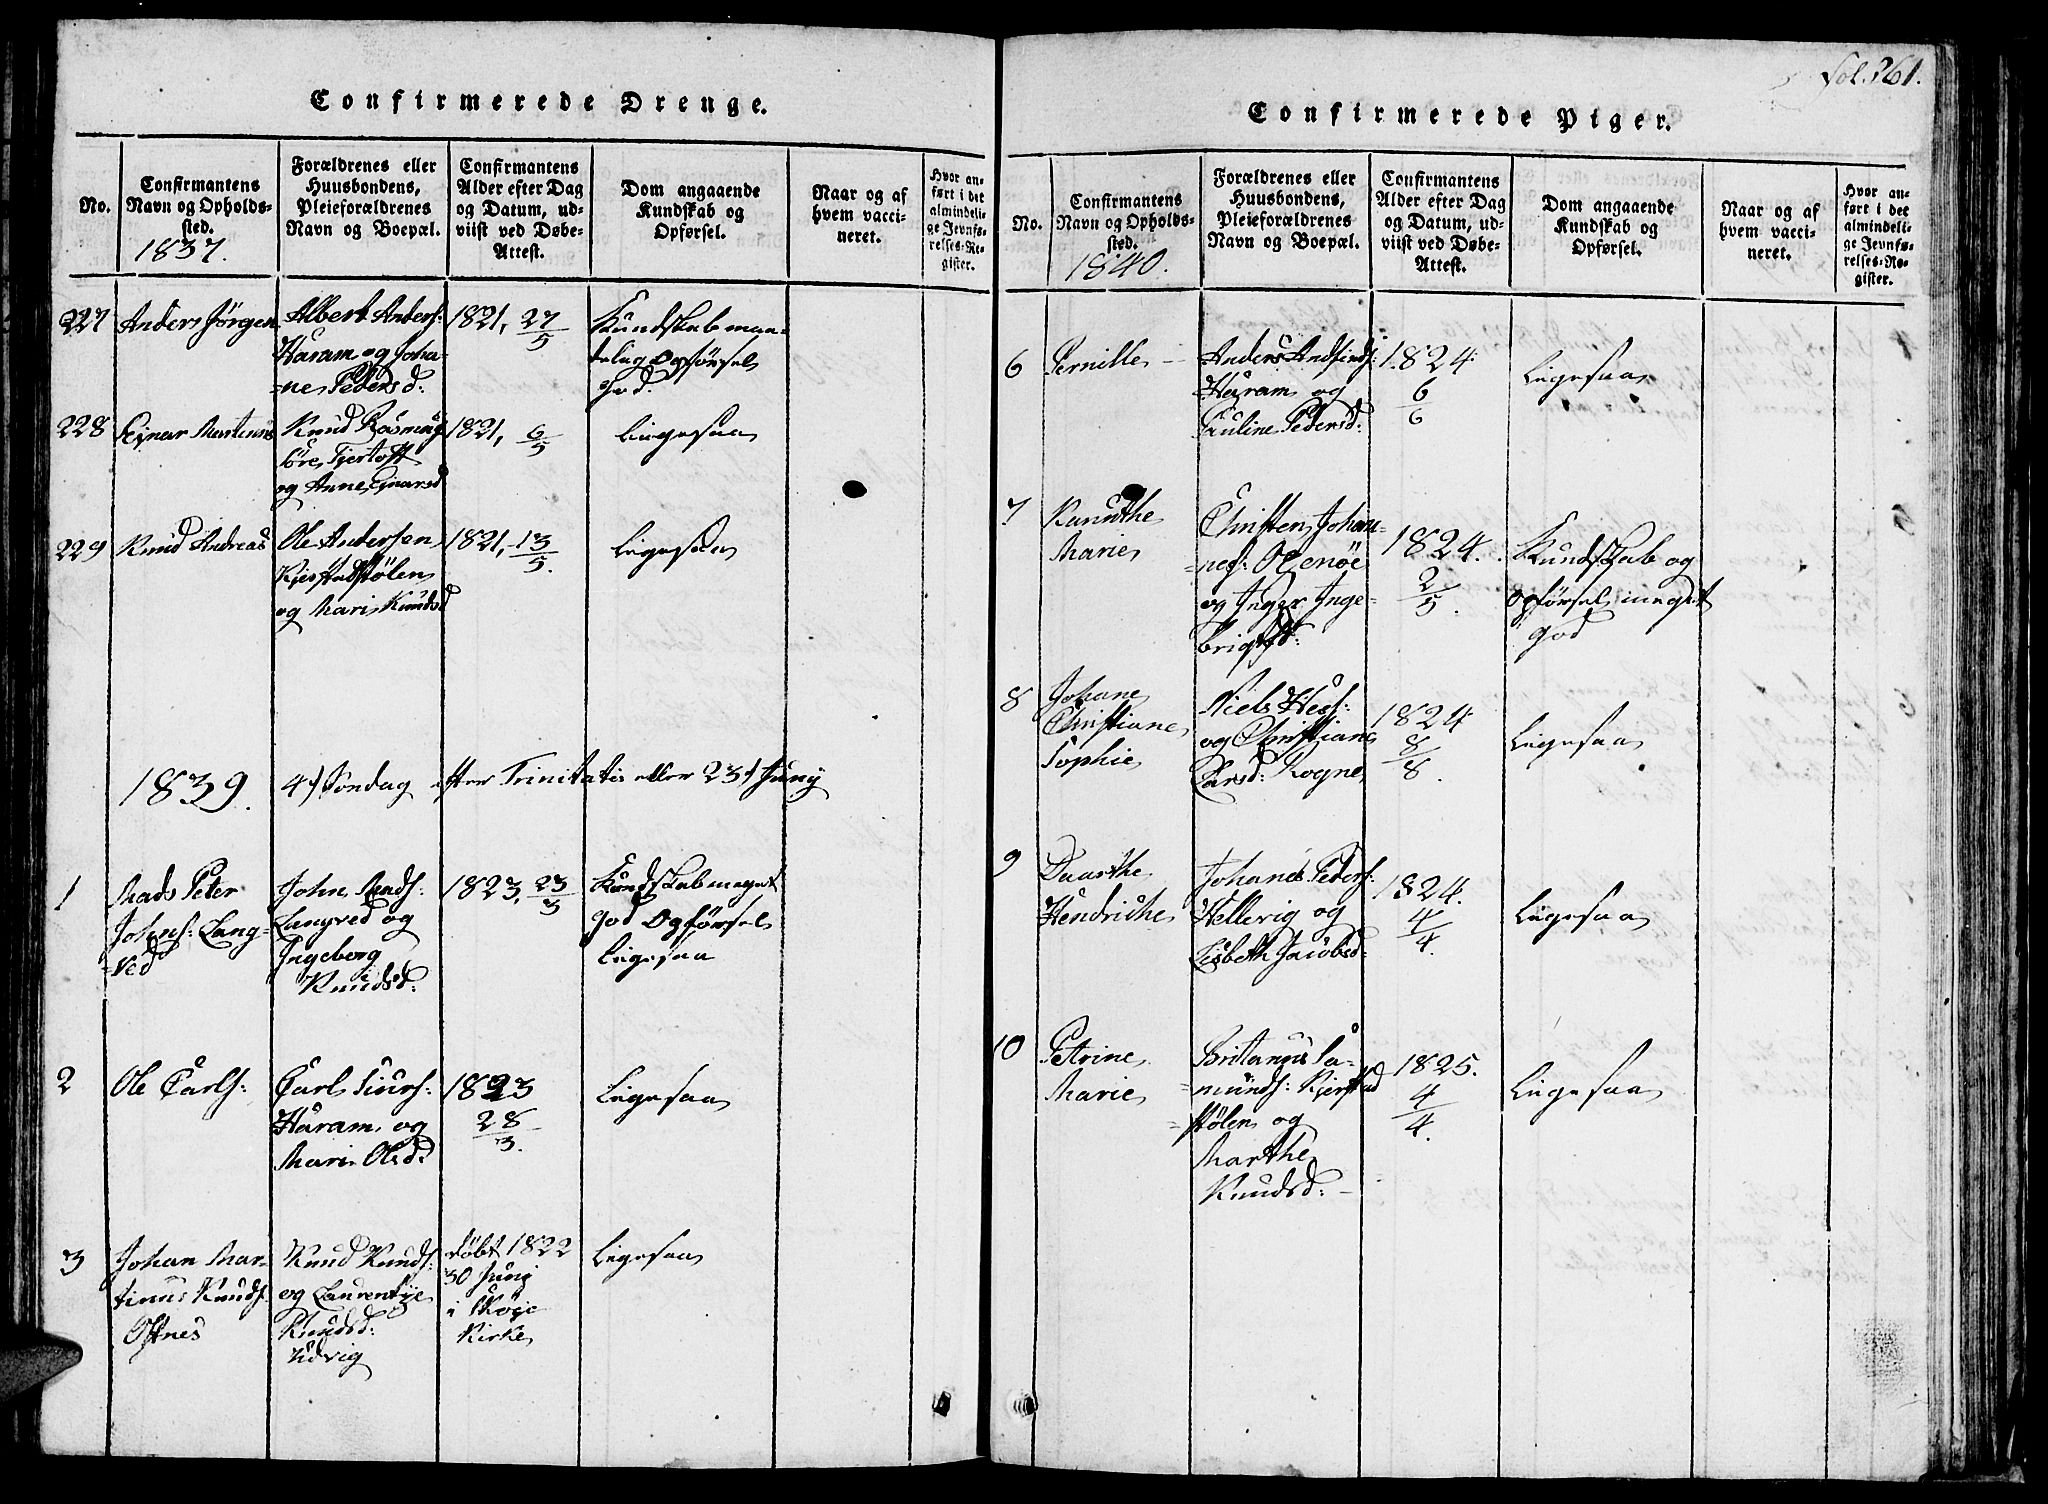 Confirmerede Drenge.
No.
Confirmantens
Navn og Opholds-
sted.
1837.
Forældrenes eller
Huusbondens,
Pleieforældrenes
Navn og Boepæl.
Confirmantens
Alder efter Dag
og Datum, ud-
viist ved Døbe-
Attest.
Dom angaaende
Kundskab og
Opførsel.
Naar og af
hvem vacci-
neret.
Hvor an-
ført i det
almindeli-
ge Jevnfø-
relses-Re-
gister.
227
Anders Jørgen
Albert Anders:
Haram og Joha-
=ne Pedersd:
1821, 27/5
Kundskab maa-
delig Opførsel
God.
228
Ejnar Martinus
Knud Rasmus
Fjertoft
og Anne Ejnarsd
1821, 6/5
Ligesaa
229
Knud Andreas
Ole Andersen
Kjerstadstølen
og Mari Knudsd
1821, 13/5.
Ligesaa
1839. 4d Søndag efter Trinitatis eller 23d Juny
1
Mads Peter
Johns: Lang-
=ved
John Mads:
Langved og
Ingeborg
Knudsd:
1823, 23/3
Kundskab meget
god Opførsel
Ligesaa
2
Ole Carls:
Carl Siurs:
Haram og
Mari Olsd:
1823
28/3.
Ligesaa
3
Johan Mar-
tinus Knuds:
Ostnes
Knud Knuds:
og Laurentje
Knudsd:
Udvig
døbt 1822
30 Juny
i Skoje
Kirke
Ligesaa
Fol. 261.
Confirmerede Piger.
No.
Confirmantens
Navn og Opholds-
sted.
1840.
Forældrenes eller
Huusbondens,
Pleieforældrenes
Navn og Boepæl.
Confirmantens
Alder efter Dag
og Datum, ud-
viist ved Døbe-
Attest.
Dom angaaende
Kundskab og
Opførsel.
Naar og af
hvem vacci-
neret.
Hvor an-
ført i det
almindeli-
ge Jevnfø-
relses-Re-
gister.
6
Pernille
Anders Andfinds:
Haram og
Pauline Pedersd:
1824
6/6
Ligesaa
7
Karinthe
Marie
Christen Johan-
=nes:
og Inger Inge-
brigtsd:
1824.
2/5.
Kundskab og
Opførsel meget
god
8
Johane
Christiane
Sophie
Niels
og Christiane
Larsd: Rogne
1824
8/8.
Ligesaa
9
Daarthe
Hendriche
Johanes Peders:
Hellevig og
Lisbeth Jacobsd:
1824.
4/4.
Ligesaa
10
Petrine
Marie
Britanus Sa-
=munds: Kjerstad
=stølen og
Marthe
Knudsd:
1825.
4/4.
Ligesaa